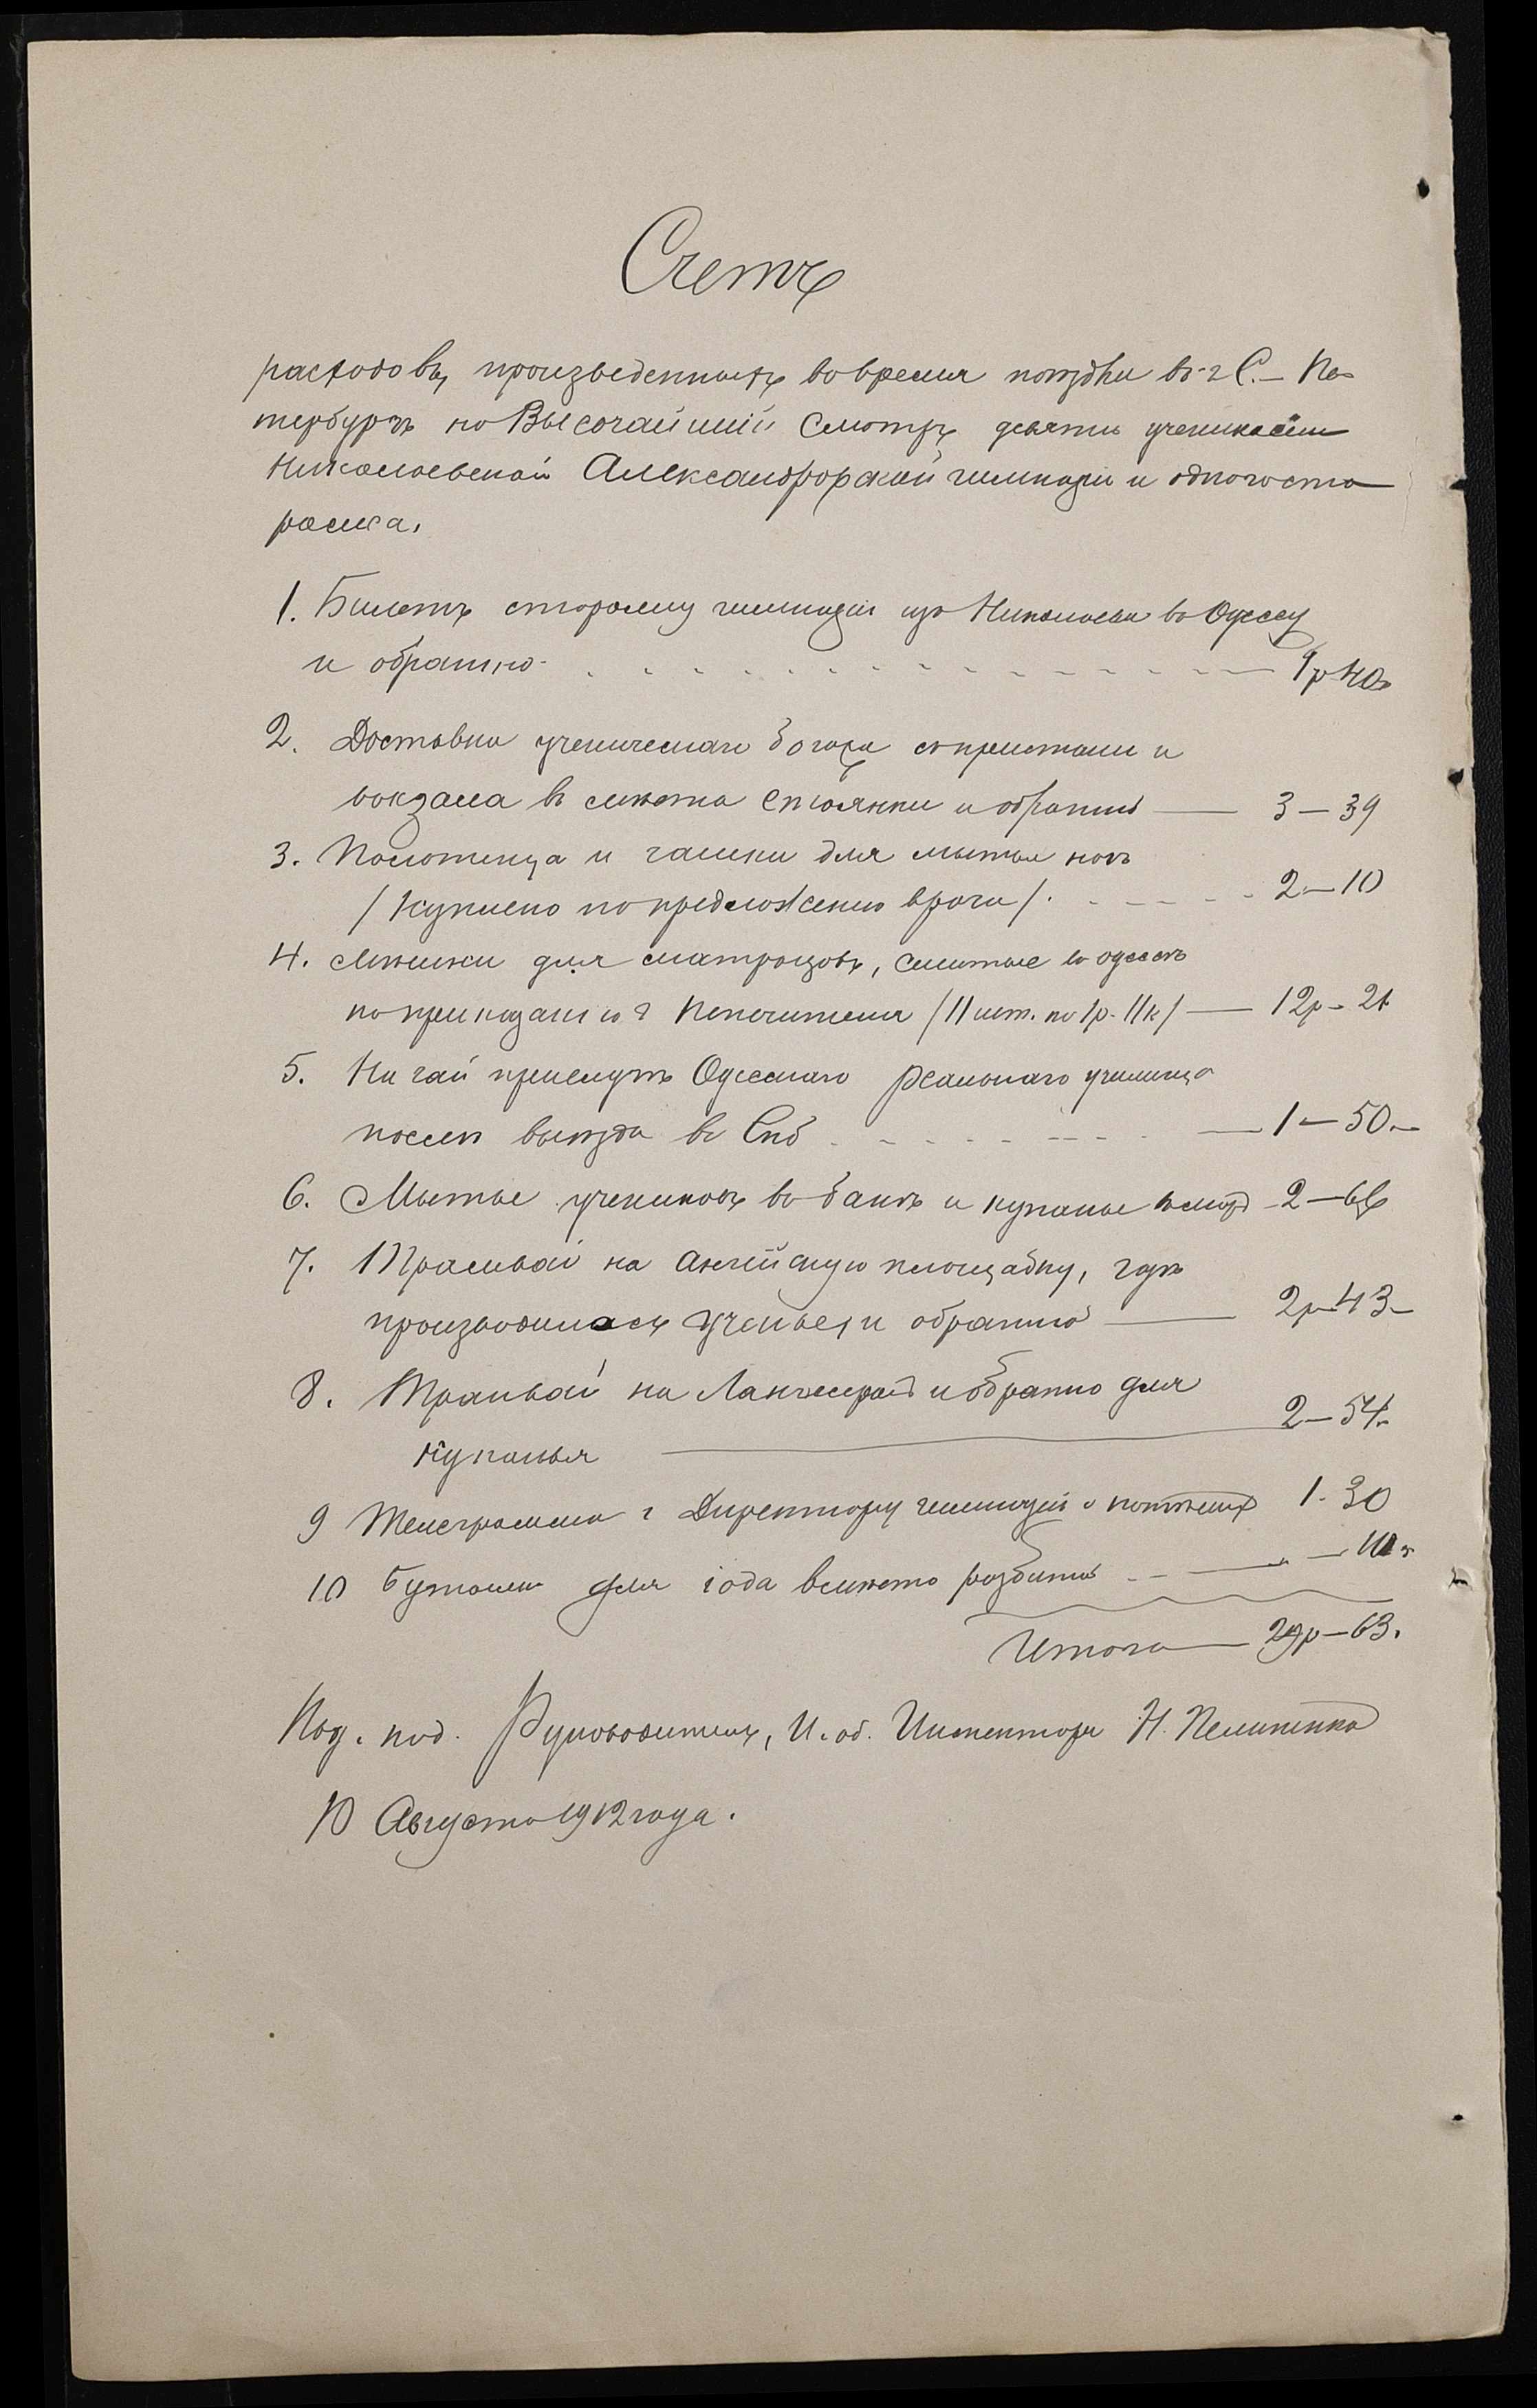 Счетъ
расходовъ, произведенныхъ во время поѣздки въ г. С.-Пе-
тербургъ на Высочайшій Смотръ девятью учениками
Николаевской Александровской гимназіи и одного сто
рожа.
1. Билетъ сторожу гимназіи изъ Николаева въ Одессу
и обратно 1р 40
2. Доставка ученическаго багажа съ пристани и
вокзала въ мѣста стоянки и обратно — 3 — 39
3. Полотенца и чашки для мытья ногъ
/Куплено по предложенію врача/. 2 — 10
4. Мѣшки для матрацовъ, сшитые въ Одессѣ
по приказанію г Попечителя /11 шт. по 1р. 11к/ — 12р - 21
5. На чай прислугѣ Одесскаго реальнаго училища
послѣ выѣзда въ Спб — 1 — 50.—
6. Мытье учениковъ въ банѣ и купанье 2 —
7. Трамвай на площадку, гдѣ
производилось ученье, и обратно — 2р 43 —
8. Трамвай на Ланжеронъ и обратно для
купанья — 2 — 54.
9 Телеграмма г Директору гимназіи о 1. 30
10 Бутылка для іода вмѣсто разбитой
Итого — 29р — 63.
Под. под. Руководитель, И. об. Инспектора Н.
10 Августа 1912 года.